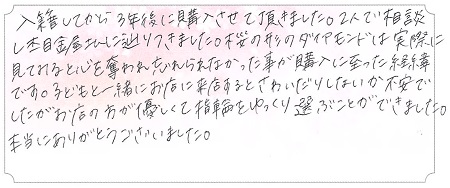 入籍してから3年後に購入させて頂きました。2人で相談
し杢目金屋さんに辿りつきました。桜の形のダイアモンドは実際に
見ておると心を奪われ忘れられなかった事が購入に至った経緯
です。子どもと一緒にお店に来店するとさわいだりしないか不安で
したがお店の方が優しくて指輪をゆっくり選ぶことができました。
本当にありがとうございました。